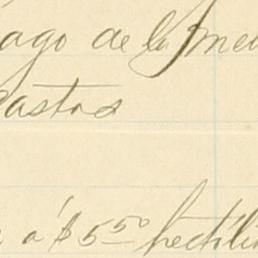 ago de la
astos
a $5 50 hectóli